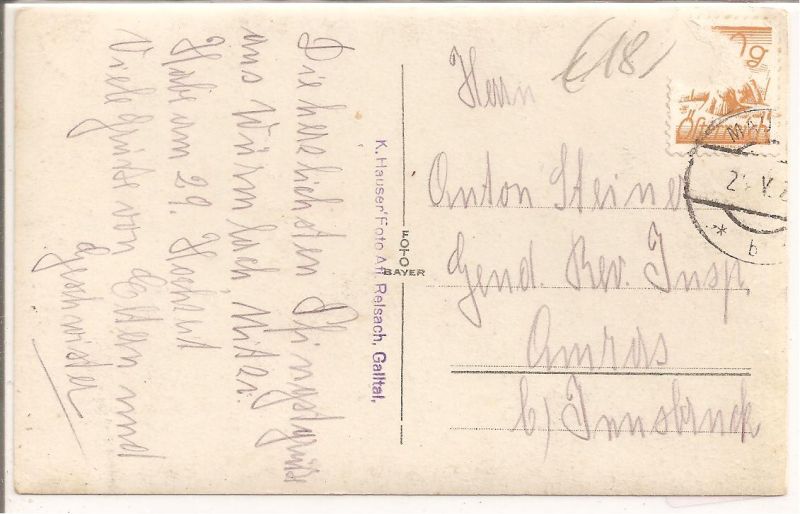 Die herzlichsten Pfingstgrüße
aus Würmlach, Mitzi.
Habe am 29. Hochzeit
Viele Grüße von Eltern und
Geschwister
K. Hauser' Foto Atl. Reisach, Gailtal,
FOTO
BAYER
Herrn
Anton Steiner
Gend. Rev. Insp.
Amras
b/ Innsbruck
€181